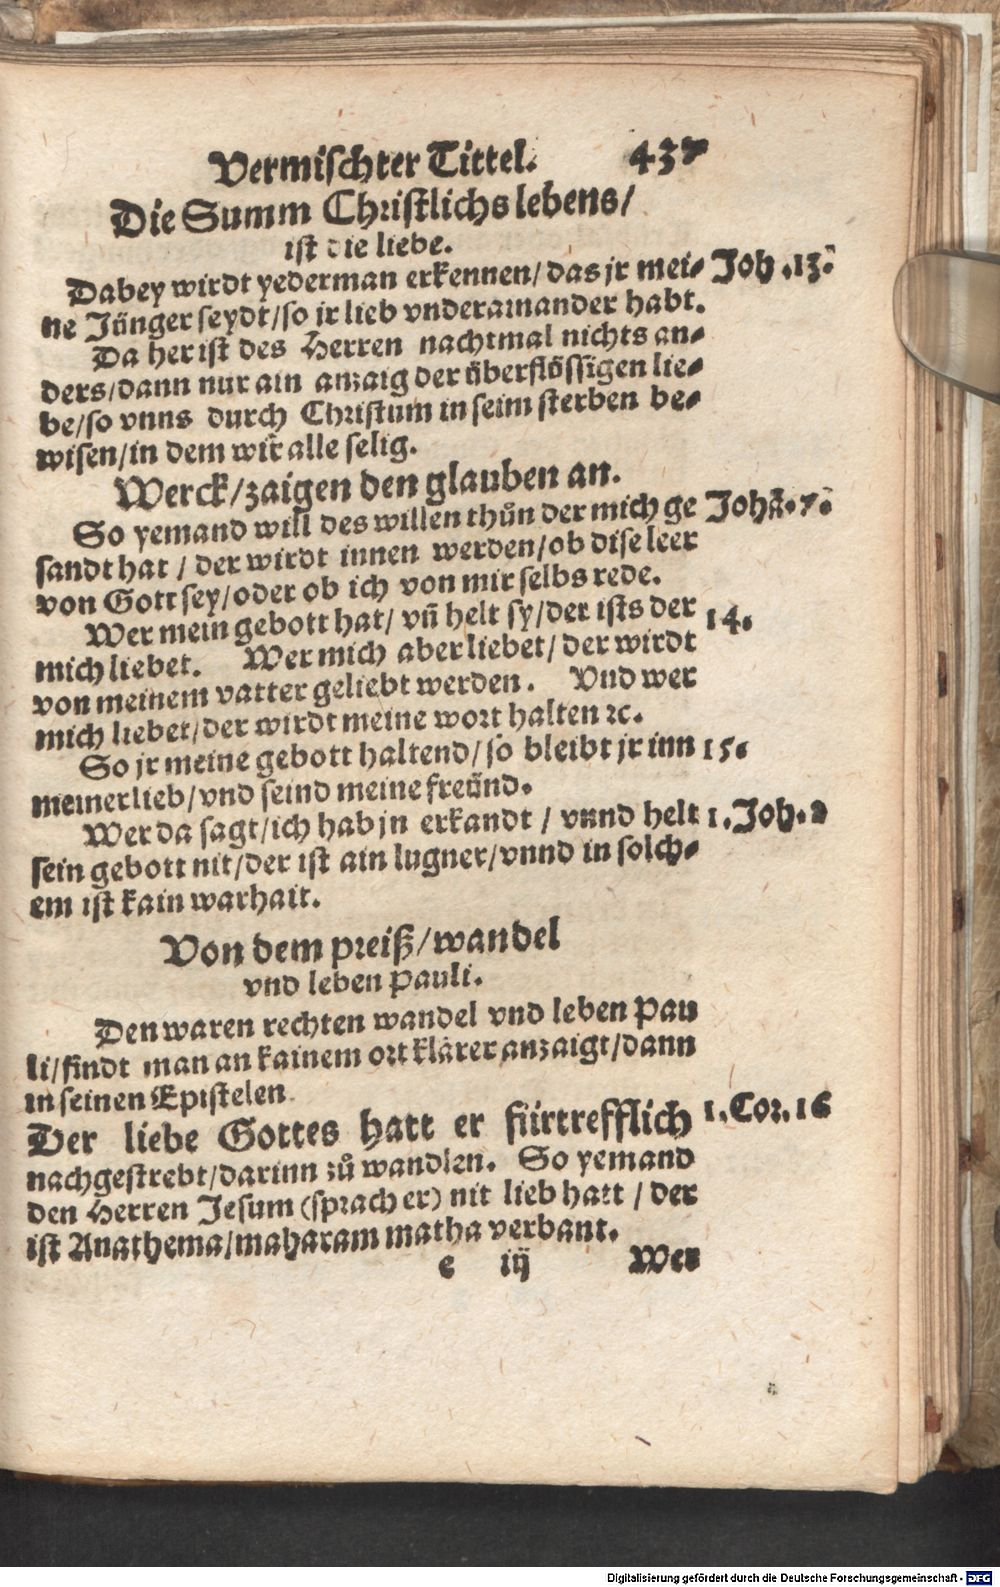 Vermischter Tittel. 437
Die Summ Christlichs lebens/
ist die liebe.
Dabey wirdt yederman erkennen/ das jr mei⸗ Joh.13.
ne Jünger seydt/so jr lieb vnderainander habt.
Da her ist des Herren nachtmal nichts an⸗
ders/dann nur ain anzaig der überflössigen lie⸗
be/so vnns durch Christum in seim sterben be⸗
wisen/in dem wir alle selig.
Werck/zaigen den glauben an.
So yemand will des willen thůn der mich ge Johā.7.
sandt hat / der wirdt innen werden/ob dise leer
von Gott sey/oder ob ich von mir selbs rede.
Wer mein gebott hat/ vñ helt sy/der ists der 14.
mich liebet. Wer mich aber liebet/ der wirdt
von meinem vatter geliebt werden. Vnd wer
mich liebet/der wirdt meine wort halten ꝛc.
So jr meine gebott haltend/so bleibt jr inn 15.
meiner lieb/vnd seind meine freünd.
Wer da sagt/ich hab jn erkandt / vnnd helt 1.Joh.2
sein gebott nit/der ist ain lugner/vnnd in solch⸗
em ist kain warhait.
Von dem preiß/wandel
vnd leben Pauli.
Den waren rechten wandel vnd leben Pau
li/findt man an kainem ort klärer anzaigt/dann
in seinen Epistelen.
Der liebe Gottes hatt er fürtrefflich 1.Cor.16
nachgestrebt/darinn zů wandlen. So yemand
den Herren Jesum (sprach er) nit lieb hatt / der
ist Anathema/maharam matha verbant.
e iij Wer
Digitalisierung gefördert durch die Deutsche Forschungsgemeinschaft - DFG